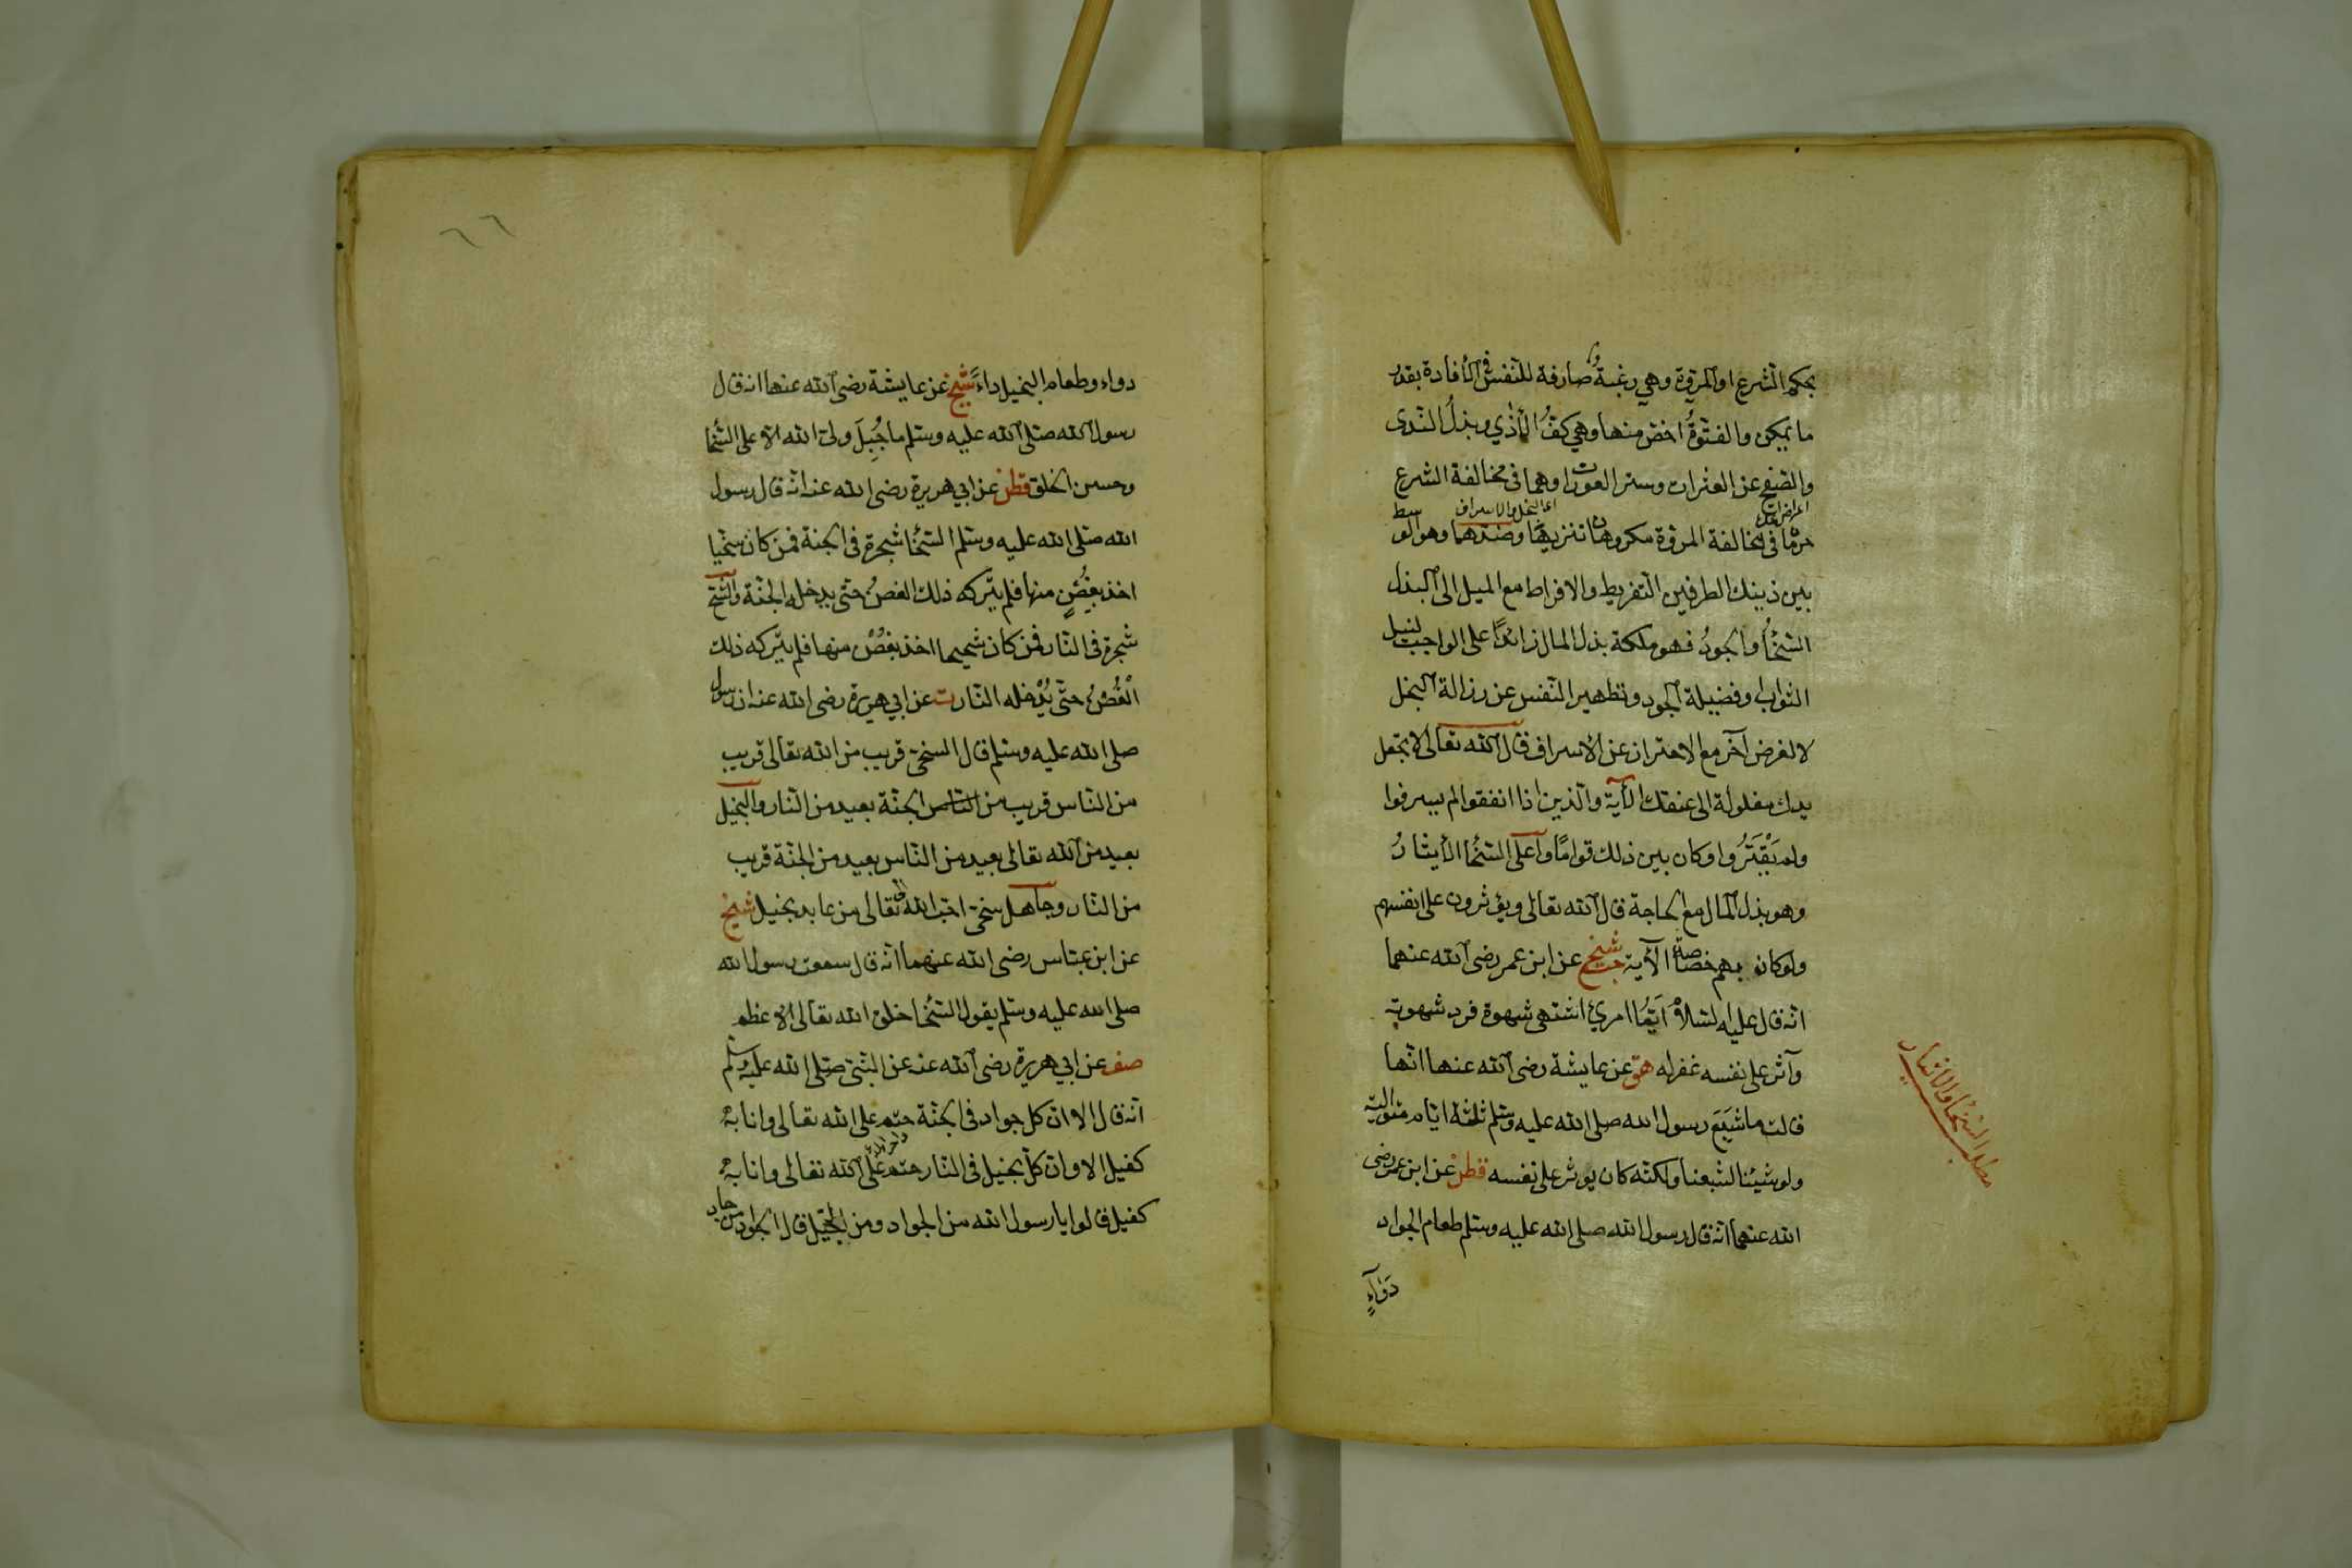 بحكم الشرع او المروّة وهي رغبةٌ صارفة للنفس في الأفادة بقدر
ما يمكن والفتوّةُ اخصّ منها وهي كفُّ الأذي وبذلُ الندى
والصّفح عن العثرات وستر العورات وهما في مخالفة الشرع
اي البخل والاسراف
حرمًا في مخالفة المروّة مكروهان تنزيهًا وضدّهما وهو الوسط
بين ذينك الطرفين التّفريط والافراط مع الميل الى البذل
السّخأُ والجودُ فهو ملكة بذل المال زائدًا على الواجب لنيل
الثواب وفضيلة الجود وتطهير النّفس عن رزالة البخل
لا لغرض آخر مع الاحتراز عن الاسراف قال الله تعالى لا تجعل
يدك مغلولة الى عنقك الأية والّذين اذا انفقوا لم يسرفوا
ولم يَقْتَرُوا وكان بين ذلك قوامًا وأعلى السّخأ الأيثارُ
وهو بذل المال مع الحاجة قال الله تعالى ويؤثرون على انفسهم
ولو كان بهم خصاصة الأية شيخ عن ابن عمر رضى الله عنهما
انّه قال عليه السّلامْ أَيّمُا امرئ اشتهى شهوة فرد شهوته
وآثر على نفسه غفر له هق عن عايشة رضى الله عنها انّها
قالت ما شَبِعَ رسول الله صلى الله عليه وسلم ثلثة ايّام متوالية
ولو شيئنا لشبعنا ولكنّه كان يوثر على نفسه قطن عن ابن عمر رضى
الله عنهما انّه قال رسول الله صلى الله عليه وسلّم طعام الجواد
دَوَآءٍ
مطلب السّخا والايثار
٦٦
دواء وطعام البخيل داءٌ شيخ عن عايشة رضى الله عنها انه قال
رسول الله صلّى الله عليه وسلم ما جُبِلَ ولىّ الله الا على السّخا
وحسن الخلق قطن عن ابي هريرة رضى الله عنه انّه قال رسول
الله صلّى الله عليه وسلم السّخأ شجرة في الجنة فمن كان سخيّا
اخذ بغصُنٍ منها فلم يتركه ذلك الغصن حتّى يدخله الجنّة والشّح
شجرة في النّار فمن كان شحيحا اخذ بغصُنٍ منها فلم يتركه ذلك
الغُصْنُ حتّى يُدْخله النّار ت عن ابي هريرة رضى الله عنه ان رسول
صلى الله عليه وسلّم قال السخىّ قريب من الله تعالى قريب
من النّاس قريب من الناس الجنّة بعيد من النّار والبخيل
بعيد من الله تعالى بعيد من النّاس بعيد من الجنّة قريب
من النّار وجاهل سخىّ احبّ الى الله تعالى من عابد بخيل شيخ
عن ابن عبّاس رضى الله عنهما انّه قال سمعت رسول الله
صلى الله عليه وسلّم يقول السّخأ خلق الله تعالى الاعظم
صف عن ابي هريرة رضى الله عنه عن النّبىّ صلّى الله عليه وسلّم
انّه قال الا انّ كل جواد في الجنّة حتم على الله تعالى وانا به
كفيل الا وانّ كلّ بخيل في النّار حتم على الله تعالى وانا به
كفيل قالوا يا رسول الله من الجواد ومن البخيل قال الجواد من جاد